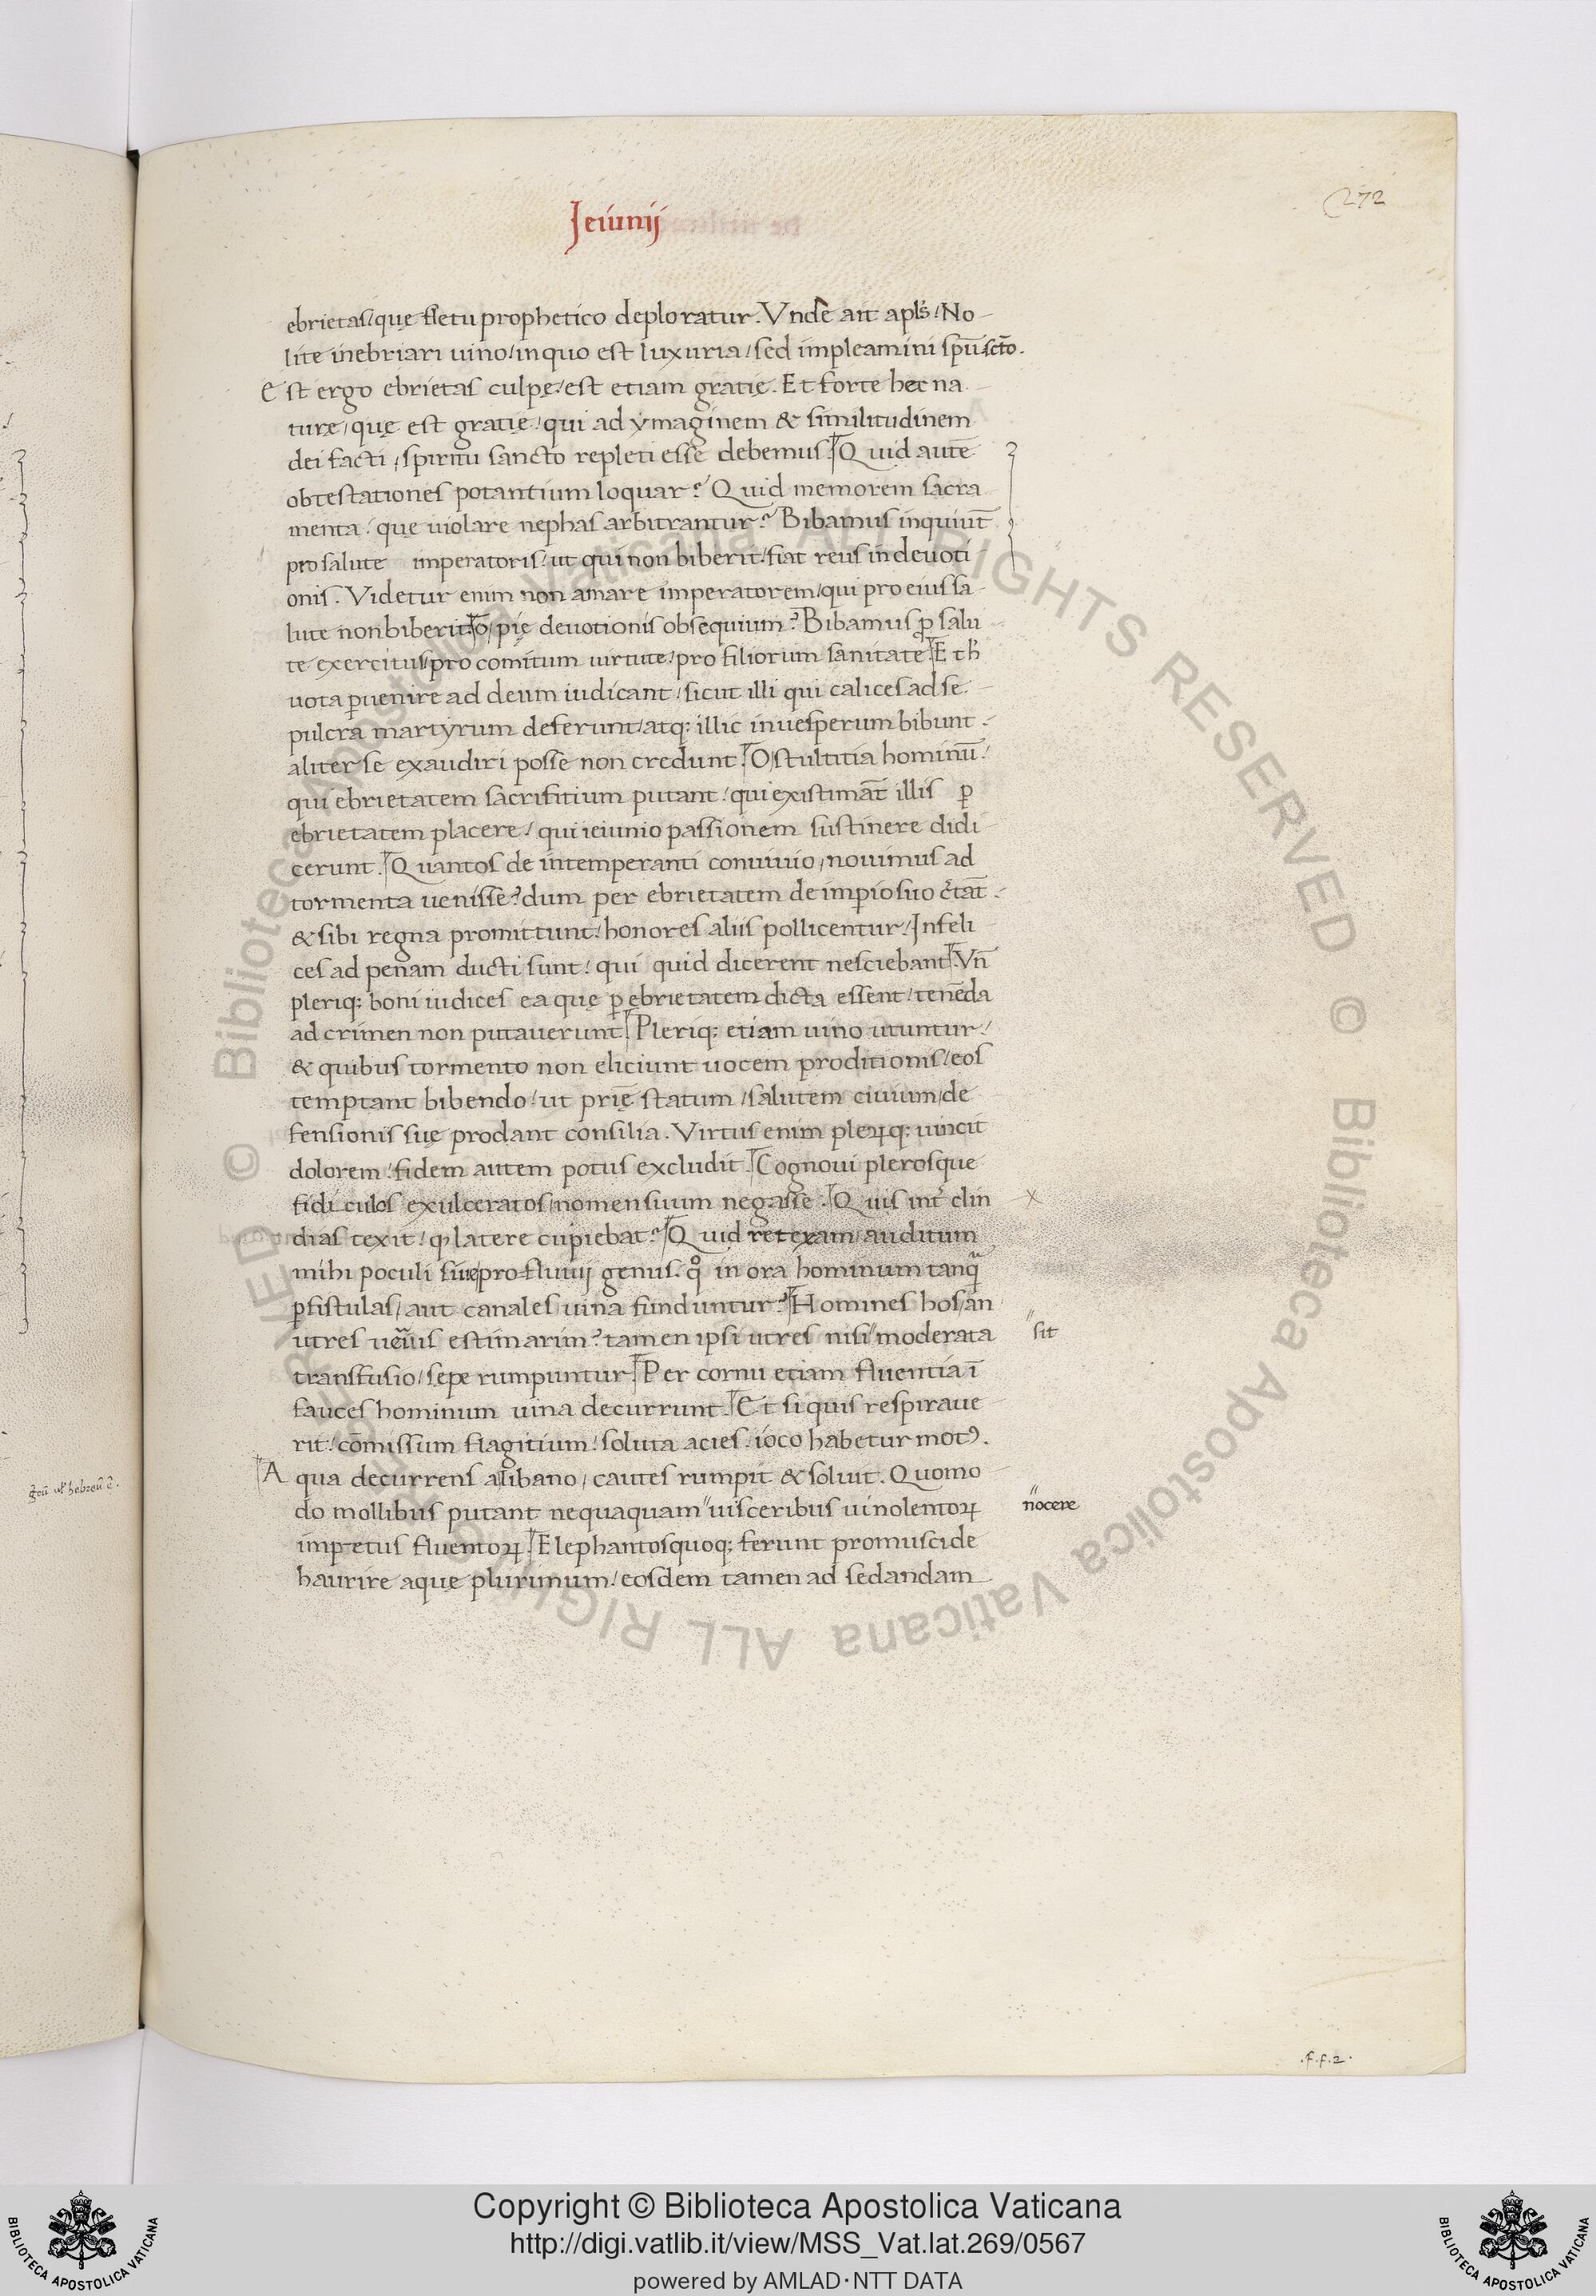 272
Jeiunij
ebrietas/quę fletu prophetico deploratur. Vnde ait apl's/No-
lite inebriari uino/in quo est luxuria/sed impleamini spū sctō.
Est ergo ebrietas culpę/est etiam gratię. Et forte hec na-
turę/quę est gratię/qui ad ymaginem & similitudinem
dei facti/spiritu sancto repleti esse debemus. Quid autē
obtestationes potantium loquar? Quid memorem sacra
menta/quę uiolare nephas arbitrantur? Bibamus inquiūt
pro salute imperatoris/ut qui non biberit/fiat reus indeuoti
onis. Videtur enim non amare imperatorem/qui pro eius sa-
lute non biberit. O/pię deuotionis obsequium? Bibamus ꝓ salu
te exercitus/pro comitum uirtute/pro filiorum sanitate. Et h'
uota ꝑuenire ad deum iudicant/sicut illi qui calices ad se-
pulcra martyrum deferunt/atq; illic in uesperum bibunt.
aliter se exaudiri posse non credunt. O/stultitia hominū/
qui ebrietatem sacrifitium putant/qui existimāt illis ꝑ
ebrietatem placere/qui ieiunio passionem sustinere didi
cerunt. Quantos de intemperanti conuiuio/nouimus ad
tormenta uenisse? dum per ebrietatem de imꝑio suo c̄tāt.
& sibi regna promittunt/honores aliis pollicentur/Infeli
ces ad penam ducti sunt/qui quid dicerent nesciebant. Vn̄
pleriq; boni iudices ea quę ꝑ ebrietatem dicta essent/tenēda
ad crimen non putauerunt. Pleriq; etiam uino utuntur/
& quibus tormento non eliciunt uocem proditionis/eos
temptant bibendo/ut prię statum/salutem ciuium/de
fensionis suę prodant consilia. Virtus enim pleꝝq; uincit
dolorem/fidem autem potus excludit. Cognoui plerosque
fidiculos exulceratos/nomen suum negasse. Quis int' clin
dias texit/q latere cupiebat? Quid retexam/auditum
mihi poculi siue profluuij genus. qͦ in ora hominum tanq̄
ꝑ fistulas/aut canales uina funduntur? Homines hos/an
utres uerius estimarim? tamen ipsi utres nisi" moderata
"sit
transfusio/sępe rumpuntur. Per cornu etiam fluentia ī
fauces hominum uina decurrunt. Et si quis respiraue
rit/cōmissum flagitium/soluta acies. ioco habetur motꝰ.
Aqua decurrens a libano/cautes rumpit & soluit. Quomo
do mollibus putant nequaquam" uisceribus uinolentoꝝ
"nocere
impetus fluentoꝝ. Elephantos quoq; ferunt promuscide
haurire aquę plurimum/eosdem tamen ad sedandam
.f.f.2.
Copyright © Biblioteca Apostolica Vaticana
http://digi.vatlib.it/view/MSS_Vat.lat.269/0567
powered by AMLAD·NTT DATA
BIBLIOTECA APOSTOLICA VATICANA
BIBLIOTECA APOSTOLICA VATICANA
© Biblioteca Apostolica Vaticana ALL RIGHTS RESERVED © Biblioteca Apostolica Vaticana ALL RIGHTS RESERVED